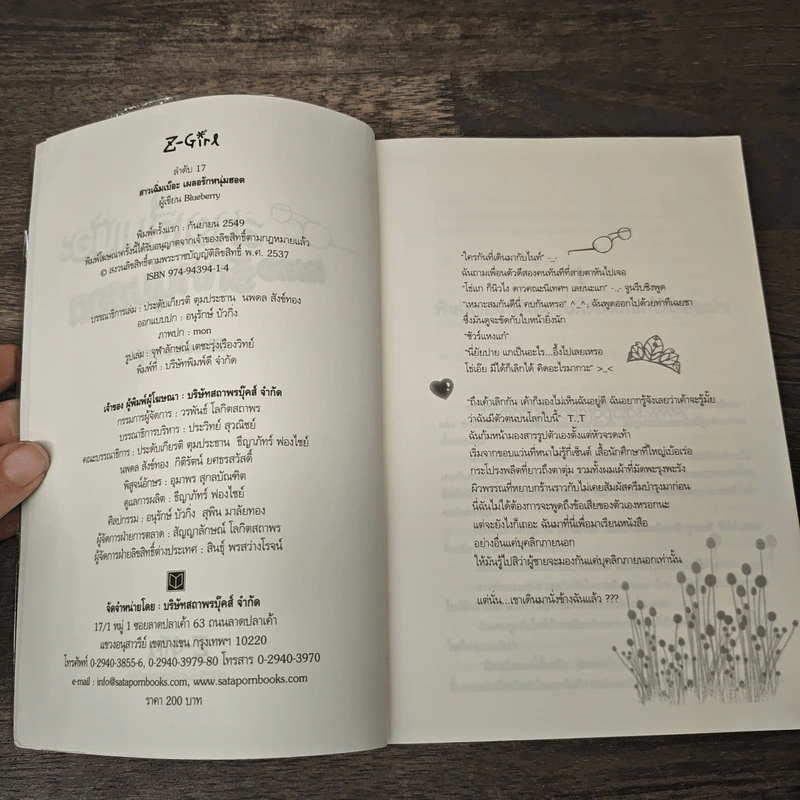 Z-Girl
ลำดับ 17
สาวเฉิ่มเบ๊อะ เผลอรักหนุ่มฮอต
ผู้เขียน Blueberry
พิมพ์ครั้งแรก : กันยายน 2549
พิมพ์โฆษณาครั้งนี้ได้รับอนุญาตจากเจ้าของลิขสิทธิ์ตามกฎหมายแล้ว
© สงวนลิขสิทธิ์ตามพระราชบัญญัติลิขสิทธิ์ พ.ศ. 2537
ISBN 974-94394-1-4
บรรณาธิการเล่ม : ประดับเกียรติ ตุมประธาน นพดล สังข์ทอง
ออกแบบปก : อนุรักษ์ บัวกิ่ง
ภาพปก : mon
รูปเล่ม : จุฬาลักษณ์ เตชะรุ่งเรืองวิทย์
พิมพ์ที่ : บริษัทพิมพ์ดี จำกัด
เจ้าของ ผู้พิมพ์ผู้โฆษณา : บริษัทสถาพรบุ๊คส์ จำกัด
กรรมการผู้จัดการ : วรพันธ์ โลกิตสถาพร
บรรณาธิการบริหาร : ประวิทย์ สุวณิชย์
คณะบรรณาธิการ : ประดับเกียรติ ตุมประธาน ธีญาภัทร์ ฟองไชย์
นพดล สังข์ทอง กิติรัตน์ ยศธรสวัสดิ์
พิสูจน์อักษร : อุมาพร สุกลบัณฑิต
ดูแลการผลิต : ธีญาภัทร์ ฟองไชย์
ศิลปกรรม : อนุรักษ์ บัวกิ่ง สุพิน มาลัยทอง
ผู้จัดการฝ่ายการตลาด : สัญญาลักษณ์ โลกิตสถาพร
ผู้จัดการฝ่ายลิขสิทธิ์ต่างประเทศ : สินธุ์ พรสว่างโรจน์
จัดจำหน่ายโดย : บริษัทสถาพรบุ๊คส์ จำกัด
17/1 หมู่ 1 ซอยลาดปลาเค้า 63 ถนนลาดปลาเค้า
แขวงอนุสาวรีย์ เขตบางเขน กรุงเทพฯ 10220
โทรศัพท์ 0-2940-3855-6, 0-2940-3979-80 โทรสาร 0-2940-3970
e-mail : info@satapornbooks.com, www.satapornbooks.com
ราคา 200 บาท
"ใครกันที่เดินมากับไนท์" -_-
ฉันถามเพื่อนตัวดีสองคนทันทีที่สายตาหันไปเจอ
"ไฮ้แก ก็นิวไง ดาวคณะนิเทศฯ เลยนะแก" -.,- จูนรีบชิงพูด
"เหมาะสมกันดีนี่ คบกันเหรอ" ^_^; ฉันพูดออกไปด้วยท่าทีเฉยชา
ซึ่งมันดูจะขัดกับใบหน้ายิ่งนัก
"ชัวร์แหงแก"
"นี่ยัยปาย แกเป็นอะไร...อึ้งไปเลยเหรอ
โฮ่เอ้ย มีได้ก็เลิกได้ คิดอะไรมากวะ" >_<
"ถึงเค้าเลิกกัน เค้าก็มองไม่เห็นฉันอยู่ดี ฉันอยากรู้จังเลยว่าเค้าจะรู้มั้ย
ว่าฉันมีตัวตนบนโลกใบนี้" T.,T
ฉันก้มหน้ามองสารรูปตัวเองตั้งแต่หัวจรดเท้า
เริ่มจากขอบแว่นที่หนาไม่รู้กี่เซ็นต์ เสื้อนักศึกษาที่ใหญ่เบ้อเร่อ
กระโปรงพลีตที่ยาวถึงตาตุ่ม รวมทั้งผมเผ้าที่มัดพะรุงพะรัง
ผิวพรรณที่หยาบกร้านราวกับไม่เคยสัมผัสครีมบำรุงมาก่อน
นี่ฉันไม่ได้ต้องการจะพูดถึงข้อเสียของตัวเองหรอกนะ
แต่จะยังไงก็เถอะ ฉันมาที่นี่เพื่อมาเรียนหนังสือ
อย่างอื่นแค่บุคลิกภายนอก
ให้มันรู้ไปสิว่าผู้ชายจะมองกันแค่บุคลิกภายนอกเท่านั้น
แต่นั่น...เขาเดินมานั่งข้างฉันแล้ว ???